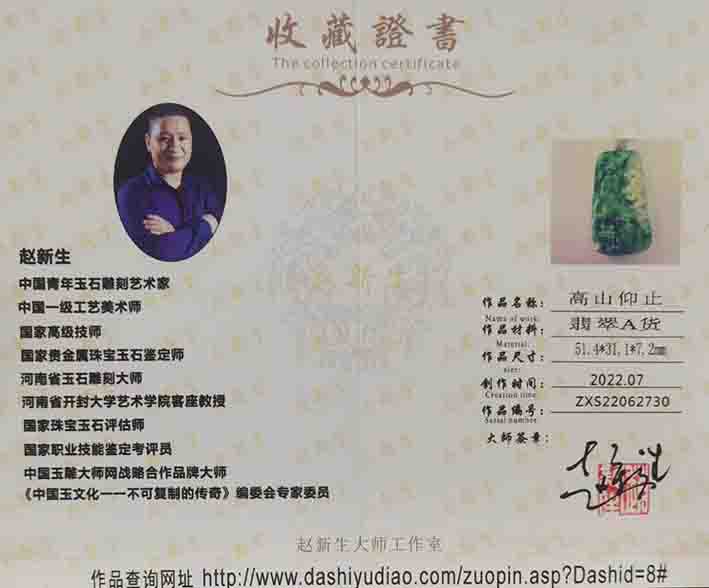 收藏證書
The collection certificate
赵新生
中国青年玉石雕刻艺术家
中国一级工艺美术师
国家高级技师
国家贵金属珠宝玉石鉴定师
河南省玉石雕刻大师
河南省开封大学艺术学院客座教授
国家珠宝玉石评估师
国家职业技能鉴定考评员
中国玉雕大师网战略合作品牌大师
《中国玉文化一一不可复制的传奇》编委会专家委员
作品名称: 高山仰止
Name of work:
作品材料: 翡翠A货
Material:
作品尺寸: 51.4*31.1*7.2mm
size:
创作时间: 2022.07
Creation time:
作品编号: ZXS22062730
Serial number:
大师签章:
赵新生
赵新生大师工作室
作品查询网址 http://www.dashiyudiao.com/zuopin.asp?Dashid=8#